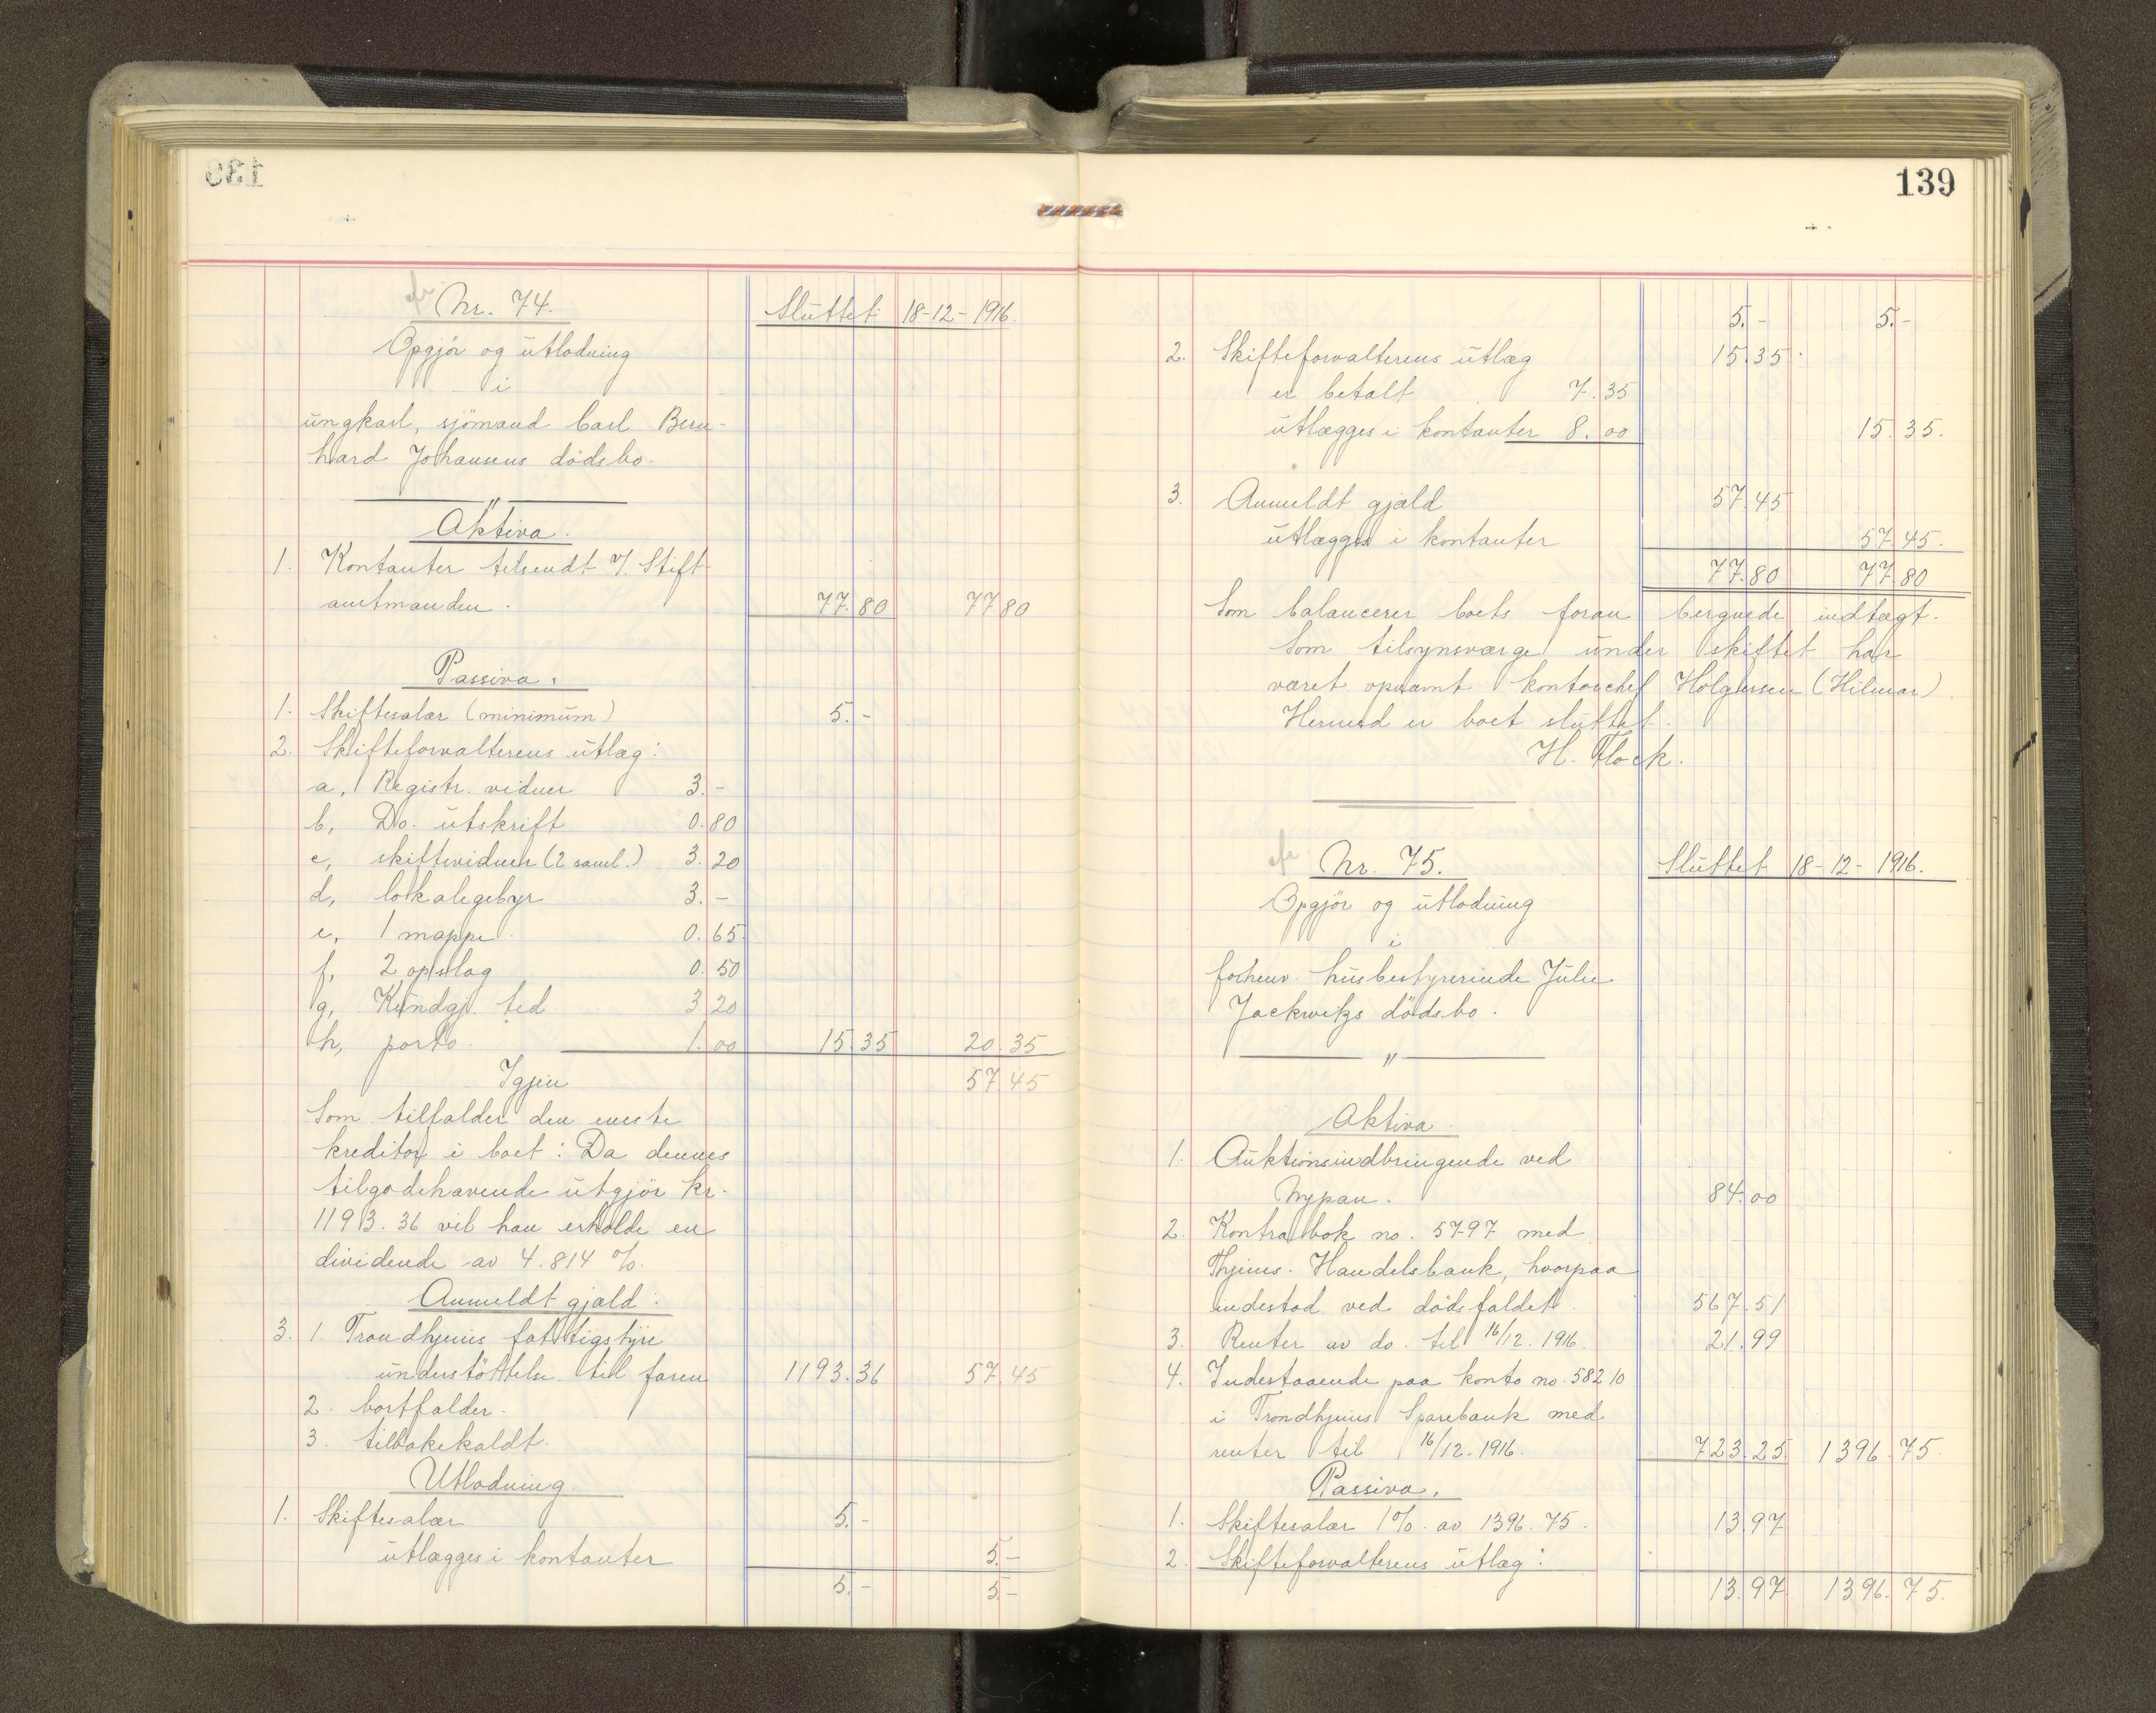 139
Nr. 74.
Sluttet 18-12-1916.
Opgjör og utlodning
i
ungkarl, sjömand Carl Bern-
hard Johansens dödsbo.
"
Aktiva.
1. Kontanter tilsendt v/. Stift-
amtmanden. 77.80 77.80
Passiva.
1. Skiftesalær (minimum) 5.-
2. Skifteforvalterens utlæg:
a, Registr. vidner 3.-
b, Do. utskrift 0.80
c, skiftevidner (2 saml.) 3.20
d, lokalegebyr 3.-
e, 1 mappe 0.65
f, 2 opslag 0.50
g, Kundgj. tid. 3.20
h, porto. 1.00 15.35 20.35
Igjen 57.45
Som tilfalder den eneste
kreditor i boet: Da dennes
tilgodehavende utgjör kr.
1193.36 vil han erholde en
dividende av 4.814 %.
Anmeldt gjæld:
3. 1. Trondhjems fattigstyre
understöttelse till faren 1193.36 57.45
2. bortfalder.
3. tilbakekaldt.
Utlodning
1. Skiftesalær 5.-
utlægges i kontanter 5.-
5.- 5.-
139
5.- 5.-
2. Skifteforvalterens utlæg 15.35
er betalt 7.35
utlægges i kontanter 8.00 15.35.
3. Anmeldt gjæld 57.45
utlægges i kontanter 57.45.
77.80 77.80
Som balancerer boets foran bergnede indtægt.
Som tilsynsværge under skiftet har
været opnævnt kontorchef Holgersen (Hilmar).
Hermed er boet sluttet.
H. Flock.
Nr. 75.
Sluttet 18-12-1916.
Opgjör og utlodning
i
forhenv. husbestyrerinde Julie
Jackwitzs dödsbo.
"
Aktiva
1. Auktionsindbringende ved
Nypan. 84.00
2. Kontrabok no. 5797 med
Thjems. Handelsbank, hvorpaa
indestod ved dödsfaldet 567.51
3. Renter av do. til 16/12.1916. 21.99
4. Indestaaende paa konto no. 58210
i Trondhjems Sparebank med
renter til 16/12.1916. 723.25 1396.75.
Passiva.
1. Skiftesalær 1% av 1396.75. 13.97
2. Skifteforvalterens utlæg:
13.97 1396.75.